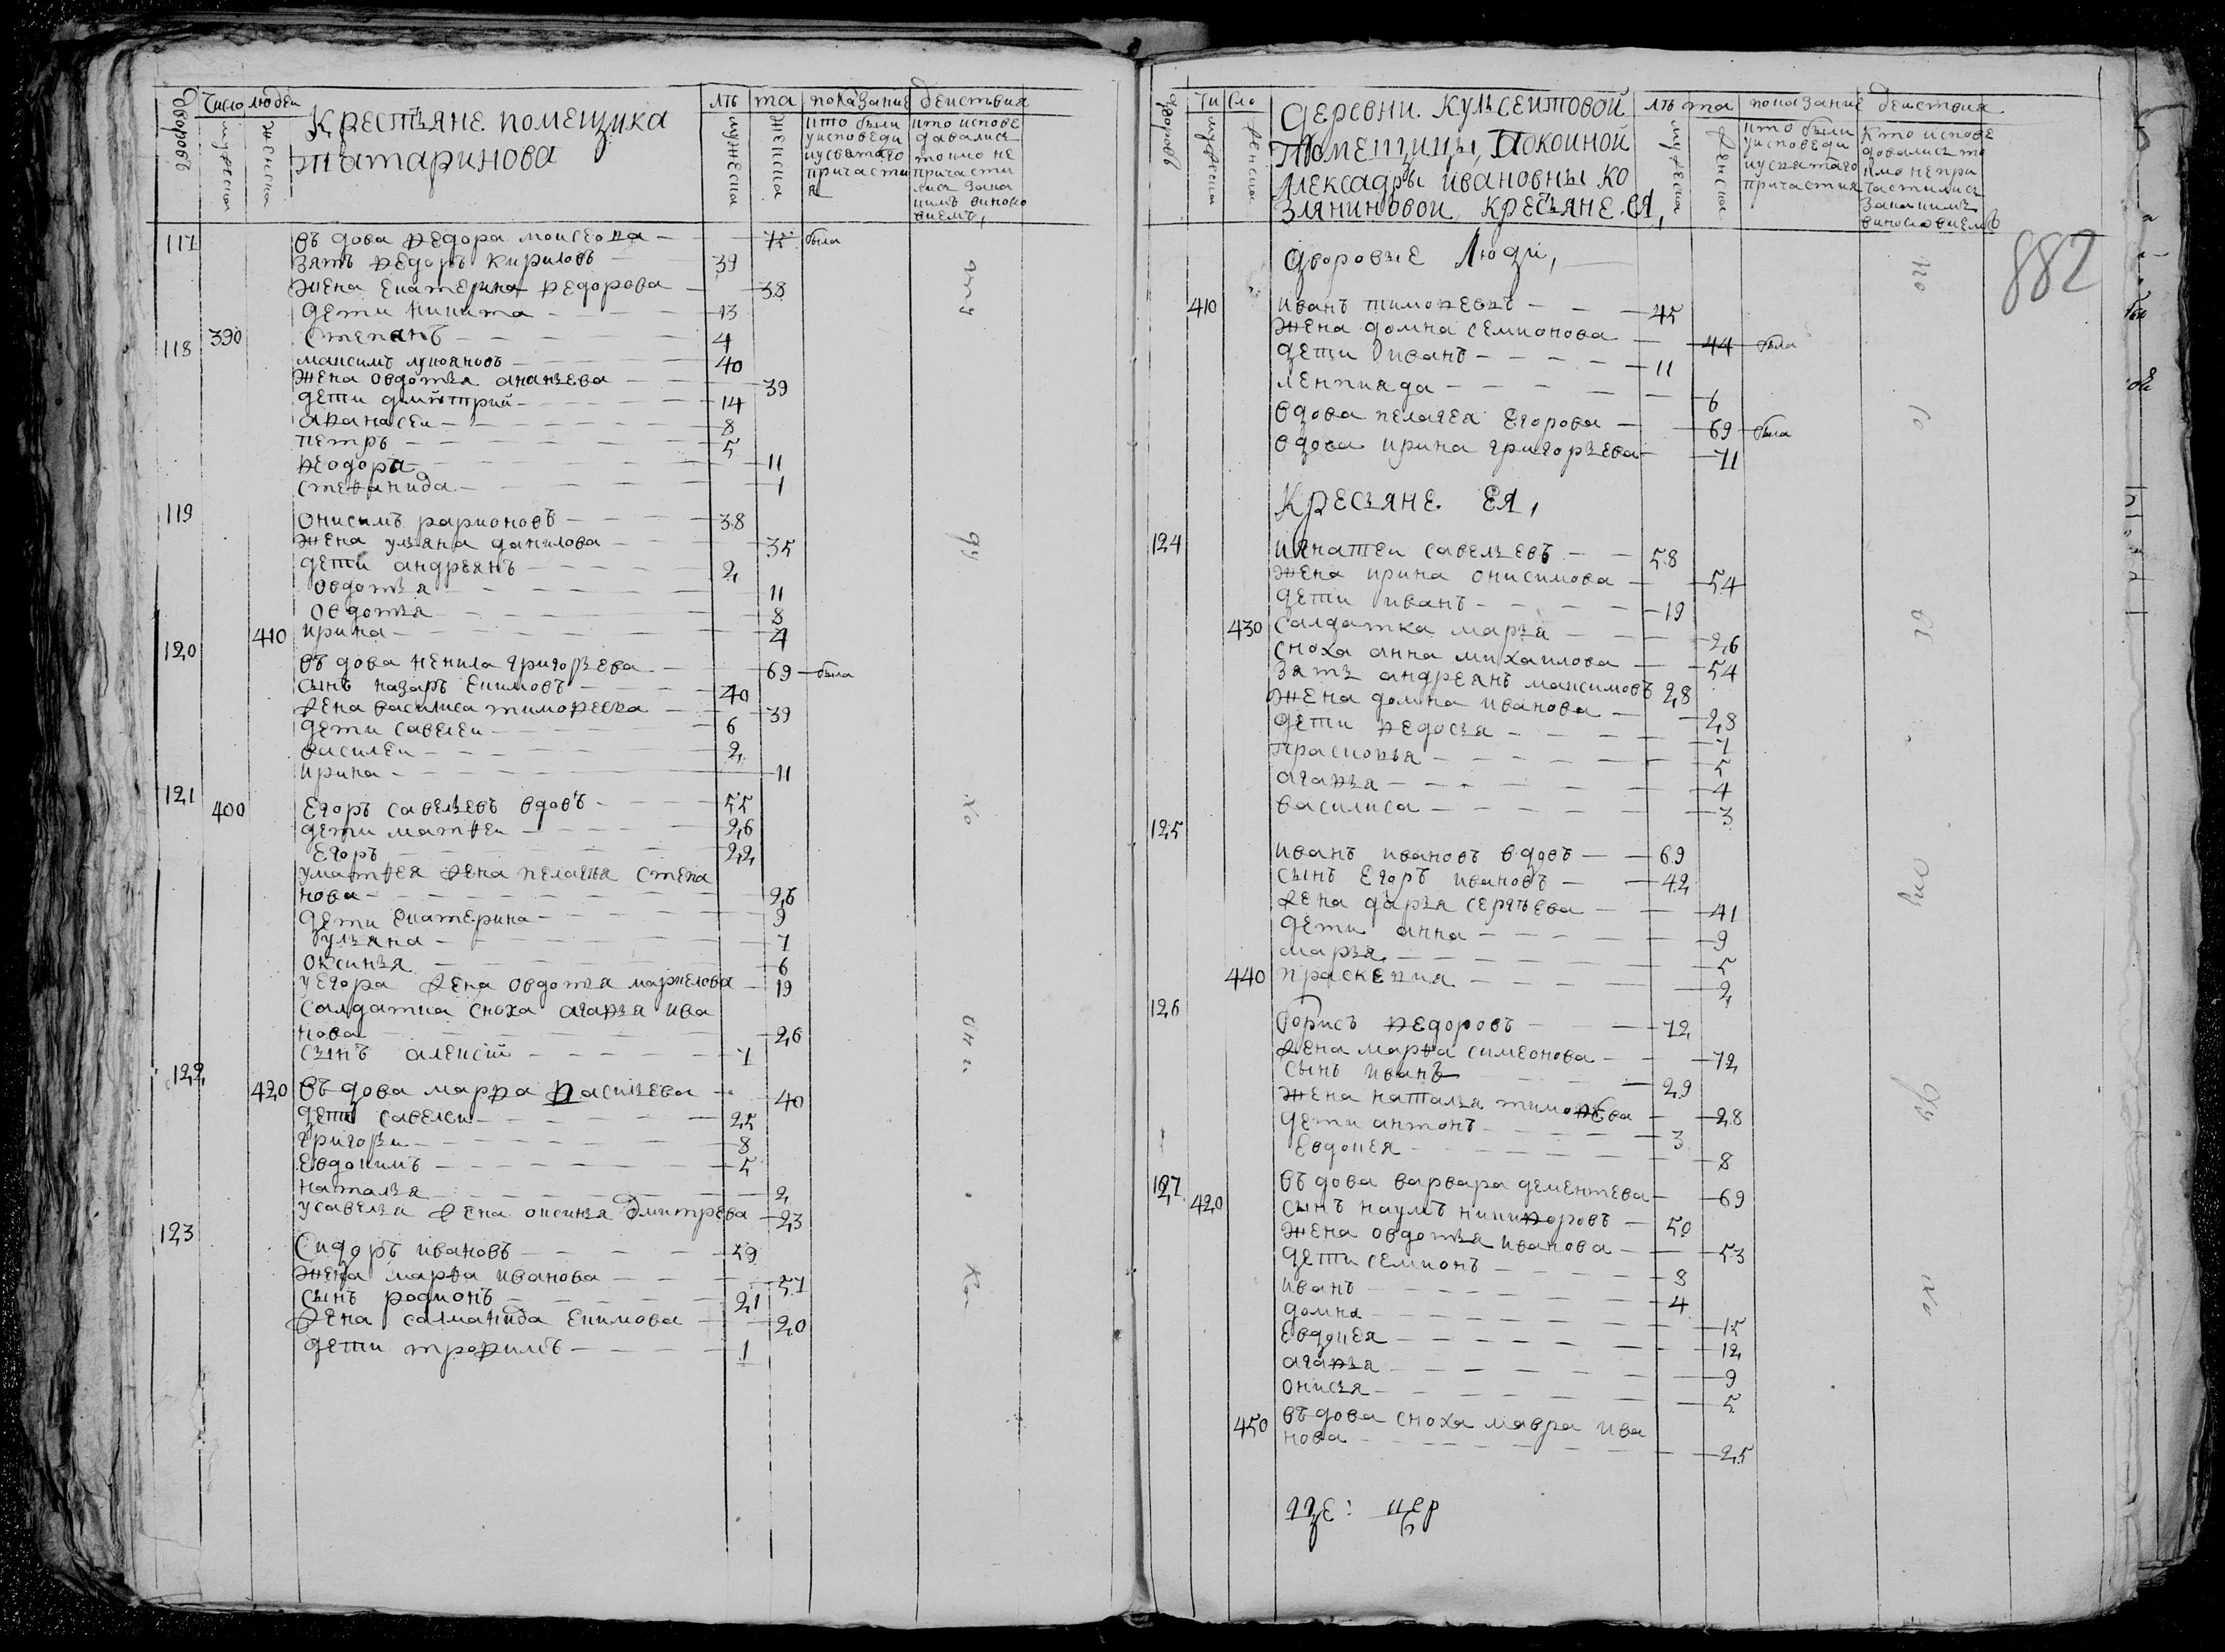 дворовъ
Число людеи
мужеска
женска
Крестъяне помещика
татаринова
лѣ та
мужеска
женска
показание деиствия
кто были
уисповеди
иусвятаго
причасти
я
кто испове
давались
токмо не
причасти
лись зака
кимъ виносло
виемъ,
117 въ дова Федора моисеова 75 была
зять Федоръ кириловъ 39
жена екатерина Федорова 38
дети никита 13
390 степанъ 4
118 максимъ лукояновъ 40
жена овдотья ананьева 39
дети дмитрий 14
афанасеи 8
петръ 5
феодора 11
стефанида 1
119 онисимъ ларионовъ 38
жена ульяна данилова 35
дети андреянъ 2
овдотья 11
овдотья 8
410 ирина 4
120 въ дова ненила григорьева 69 была
сынъ назаръ екимовъ 40
жена василиса тимофеева 39
дети савелеи 6
василеи 2
ирина 11
121 400 егоръ савельевъ вдовъ 55
дети матвеи 26
егоръ 22
уматвея жена пелагея степа
нова 26
дети екатерина 9
ульяна 7
оксинья 6
уегора жена овдотья маркелова 19
солдатка сноха агафья ива
нова 26
сынъ алексiй 7
122 420 въ дова марфа васильева 40
дети савелеи 25
григореи 8
евдокимъ 5
наталья 2
усавелья жена оксинья дмитрева 23
123 Сидоръ ивановъ 59
жена марфа иванова 57
сынъ родионъ 21
жена саломанида екимова 20
дети трофимъ 1
дворовъ
чи сло
мужеска
женска
деревни кульсеитовой
помещицы, покоиной
Алексадры ивановны ко
зляниновой кресьяне ея,
лѣ та
мужеска
женска
показание деиствия
кто были
уисповеди
иусвятаго
причастия
кто испове
довались то
кмо непри
частились
закакимъ
винословиемъ
882
дворовые люди,
410 иванъ тимофеевъ 45
жена домна семионова 44 была
дети иванъ 11
ленпияда 6
вдова пелагея егорова 69 была
вдова ирина григорьева 71
Кресьяне ея,
124 игнатеи савельевъ 58
жена ирина онисимова 54
дети иванъ 19
430 солдатка марья 26
сноха анна михаилова 54
зять андреянъ максимовъ 28
жена домна иванова 28
дети федосья 7
прасковья 5
агафья 4
василиса 3
125 иванъ ивановъ вдовъ 69
сынъ егоръ ивановъ 42
жена дарья сергѣева 41
дети анна 9
марья 5
440 праскевия 2
126 борисъ федоровъ 72
жена марфа симеонова 72
сынъ иванъ 29
жена наталья тимофѣева 28
дети антонъ 3
евдокея 8
127 въ дова варвара дементева 69
420 сынъ наумъ никифоровъ 50
жена овдотья иванова 53
дети семионъ 8
иванъ 4
домна 15
евдокея 12
агафья 9
онисья 5
450 въ дова сноха мавра ива
нова 25